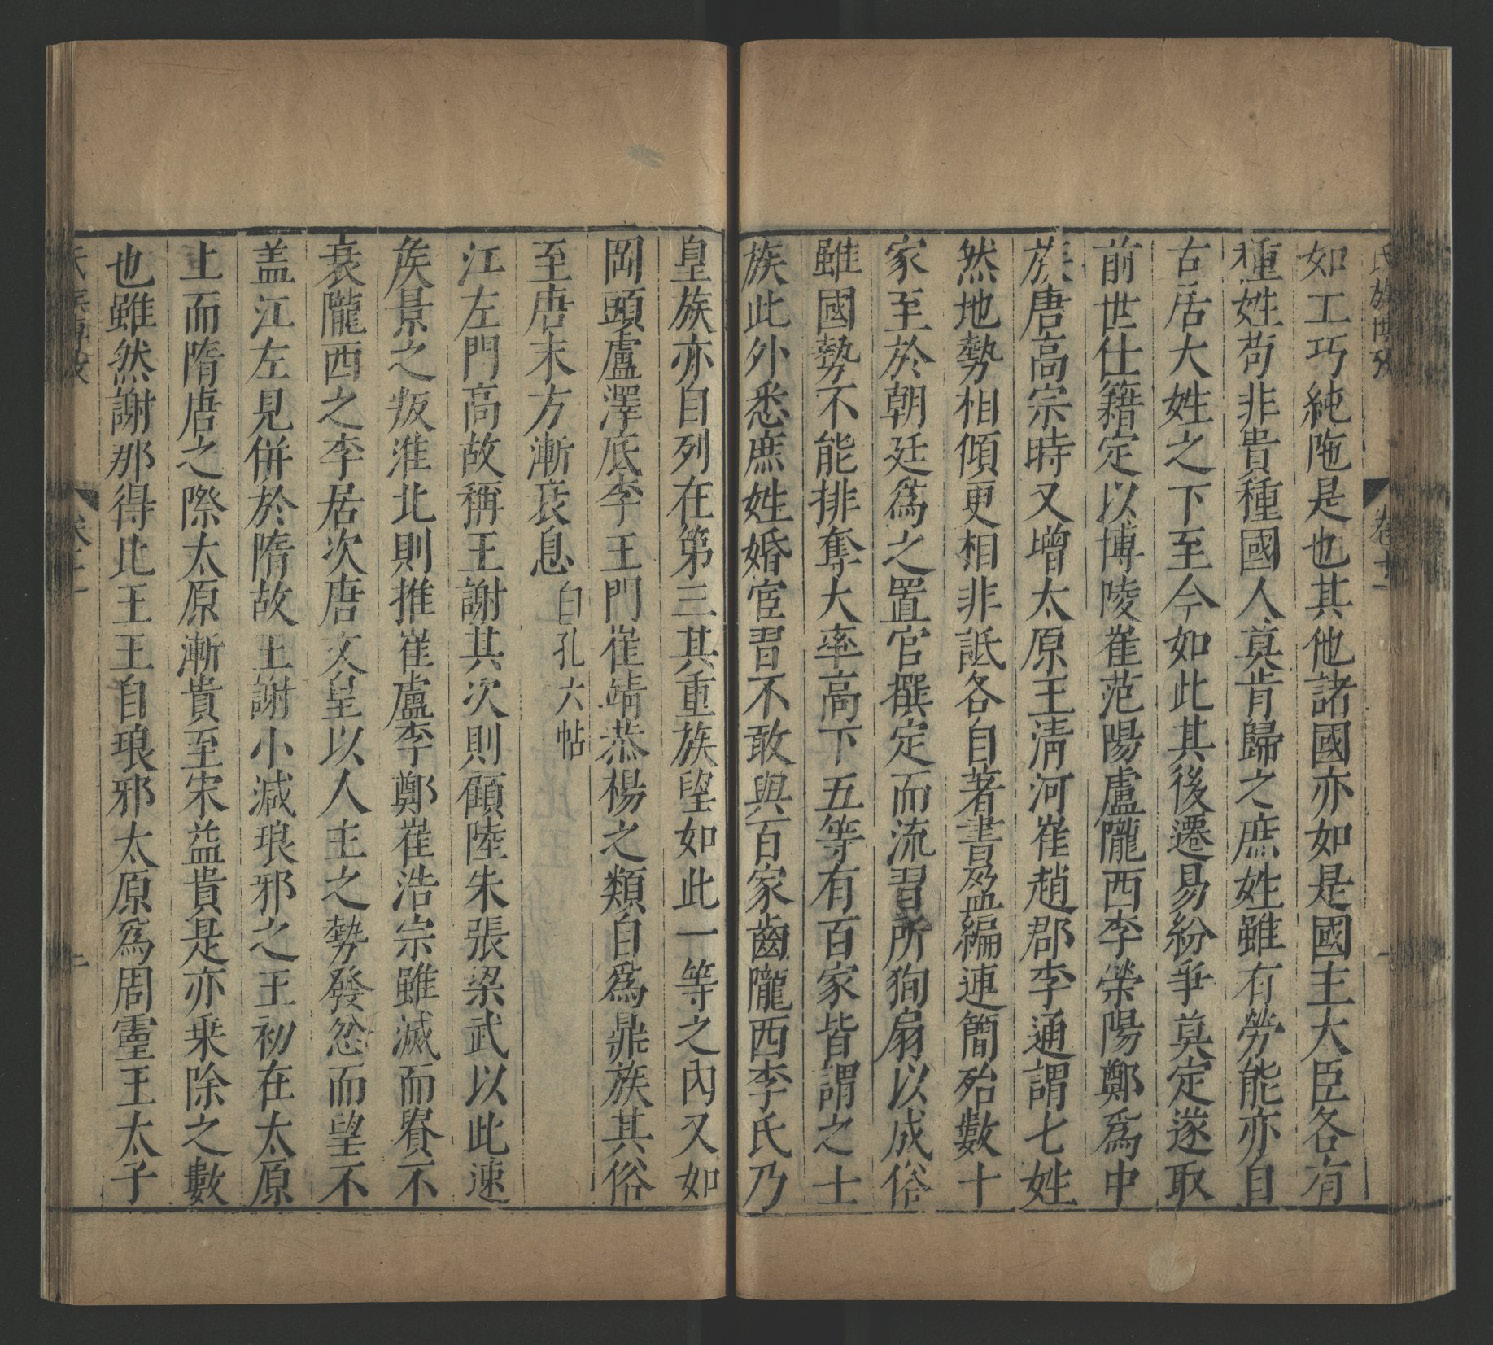 氏族博攷 卷十二
如工巧純陁是也其他諸國亦如是國主大臣各有
種姓苟非貴種國人莫肯歸之庶姓雖有勞能亦自
古居大姓之下至今如此其後遷易紛爭莫定遂取
前世仕籍定以博陵崔范陽盧隴西李榮陽鄭爲中
族唐高宗時又增太原王清河崔趙郡李通謂七姓
然地勢相傾更相非詆各自著書盈編連簡殆數十
家至於朝廷爲之置官撰定而流習所徇扇以成俗
雖國勢不能排奪大率高下五等有百家皆謂之士
族此外悉庶姓婚宦習不敢與百家齒隴西李氏乃
皇族亦自列在第三其重族望如此一等之內又如
岡頭盧澤底李王門崔靖恭楊之類自爲鼎族其俗
至唐末方漸衰息白孔六帖
江左門高故稱王謝其次則顧陸朱張梁武以此速
矦景之叛淮北則推崔盧李鄭崔浩宗雖滅而賽不
衰隴西之李居次唐文皇以人主之勢發忿而望不
盖江左見併於隋故王謝小減琅邪之王初在太原
上而隋唐之際太原漸貴至宋益貴是亦乗除之數
也雖然謝那得比王王自琅邪太原爲周靈王太子